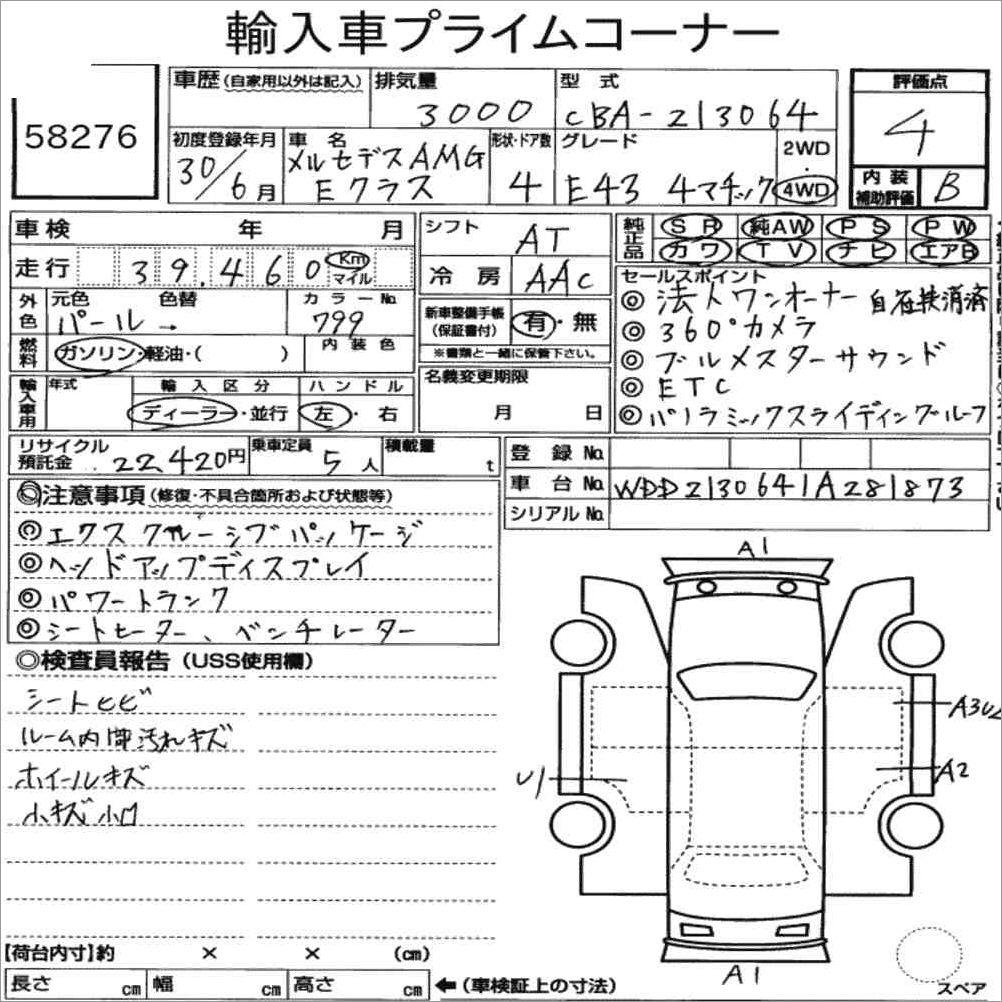 輸入車プライムコーナー
58276
車歴 (自家用以外は記入)
排気量
3000
型式
CBA-213064
評価点
4
初度登録年月
30/6月
車名
メルセデスAMG
Eクラス
形状・ドア数
4
グレード
E43 4マチック
2WD
・
4WD
内装
補助評価
B
車検 年 月
走行 39,460 Km
マイル
シフト
AT
冷房
AAC
純正品
SR 純AW PS PW
カワ TV ナビ エアB
外色
元色 色替 カラーNo.
パール → 799
燃料
ガソリン・軽油・( )
内装色
新車整備手帳
(保証書付)
有・無
※書類と一緒に保管下さい。
セールスポイント
◎ 法人ワンオーナー 自在検消済
◎ 360°カメラ
◎ ブルメスターサウンド
◎ ETC
◎ パノラミックスライディングルーフ
輸入車用
年式
輸入区分
ディーラー・並行
ハンドル
左・右
名義変更期限
月 日
リサイクル
預託金 22,420円
乗車定員
5人
積載量
t
登録No.
車台No. WDD2130641A281873
シリアルNo.
◎注意事項 (修復・不具合箇所および状態等)
◎エクスクルーシブパッケージ
◎ヘッドアップディスプレイ
◎パワートランク
◎シートヒーター、ベンチレーター
◎検査員報告 (USS使用欄)
シートヒビ
ルーム内部汚れキズ
ホイールキズ
小キズ小凹
A1
A3U2
A2
U1
A1
【荷台内寸】約 × × (cm)
長さ cm 幅 cm 高さ cm ←(車検証上の寸法)
スペア